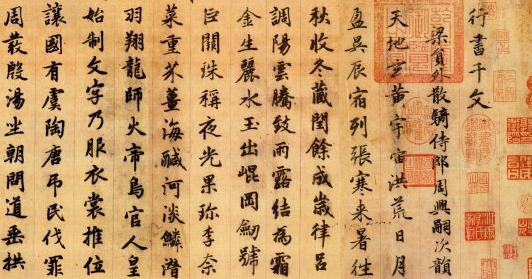 行書千文
梁員外散騎侍郎周興嗣次韻
天地玄黃宇宙洪荒日月
盈昃辰宿列張寒来暑往
秋收冬藏閏餘成歲律呂
調陽雲騰致雨露結為霜
金生麗水玉出崐岡劒號
巨闕珠稱夜光果珎李柰
菜重芥薑海鹹河淡鱗潛
羽翔龍師火帝鳥官人皇
始制文字乃服衣裳推位
讓國有虞陶唐吊民伐罪
周發殷湯坐朝問道垂拱